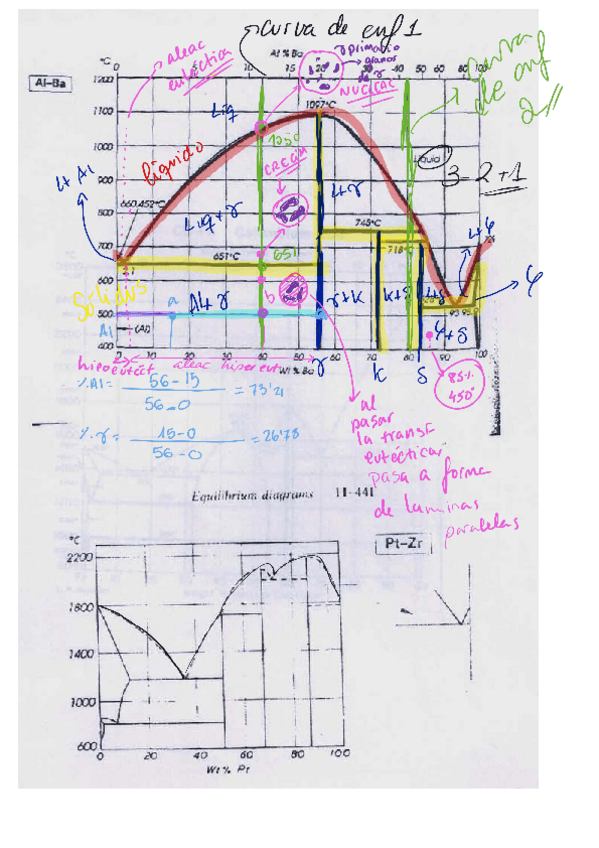 curva de enf 1
aleac
eutéctica
At % Ba
primario
granos
de γ
NUCLEAC
curva
de enf
2
Al-Ba
°C
0
5
10
15
20
30
40
50
60
80
100
1200
1100
1000
900
800
700
600
500
400
Liq
1097°C
1050
CRECIM
líquido
Liquid
3-2+1
L+Al
660,452°C
L+γ
Liq+γ
745°C
L+φ
718
651°C
651
Sólidus
a
Al+γ
b
γ+k
k+δ
φ
φ+δ
Al
(Al)
0
10
20
30
40
50
60
70
80
90
100
Wt % Ba
hipoeutect
aleac hipereut
γ
k
δ
85%
450°
%Al = 56-15 / 56-0 = 73'21
%γ = 15-0 / 56-0 = 26'78
al
pasar
la transf
eutéctica
pasa a forma
de laminas
paralelas
Equilibrium diagrams 11-441
°C
Pt-Zr
2200
1800
1400
1000
600
0
20
40
60
80
100
Wt % Pt